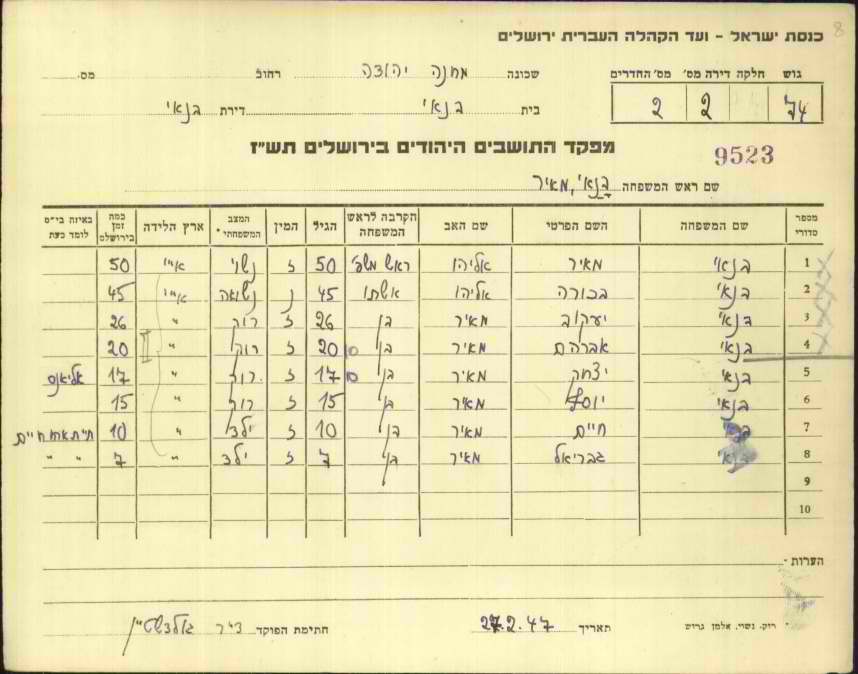 8
כנסת ישראל – ועד הקהלה העברית ירושלים
גוש חלקה דירה מס' מס' החדרים
74 2 2
שכונה מחנה יהודה רחוב מס.
בית בנאי דירת בנאי
מפקד התושבים היהודים בירושלים תש"ז
9523
שם ראש המשפחה בנאי, מאיר
מספר סדורי שם המשפחה השם הפרטי שם האב הקרבה לראש המשפחה הגיל המין המצב המשפחתי * ארץ הלידה כמה זמן בירושלים באיזה בי"ס לומד כעת
1 בנאי מאיר אליהו ראש משפ' 50 ז נשוי א"י 50
2 בנאי בכורה אליהו אשתו 45 נ נשואה א"י 45
3 בנאי יעקוב מאיר בן 26 ז רוק " 26
4 בנאי אברהם מאיר בן 20 ז רוק " 20
5 בנאי יצחק מאיר בן 17 ז רוק " 17 אליאנס
6 בנאי יוסף מאיר בן 15 ז רוק " 15
7 בנאי חיים מאיר בן 10 ז ילד " 10 ת"ת
8 בנאי גבריאל מאיר בן 7 ז ילד " 7 " "
9
10
הערות
* רוק, נשוי, אלמן גרוש תאריך 27.2.47 חתימת הפוקד גולדשטיין